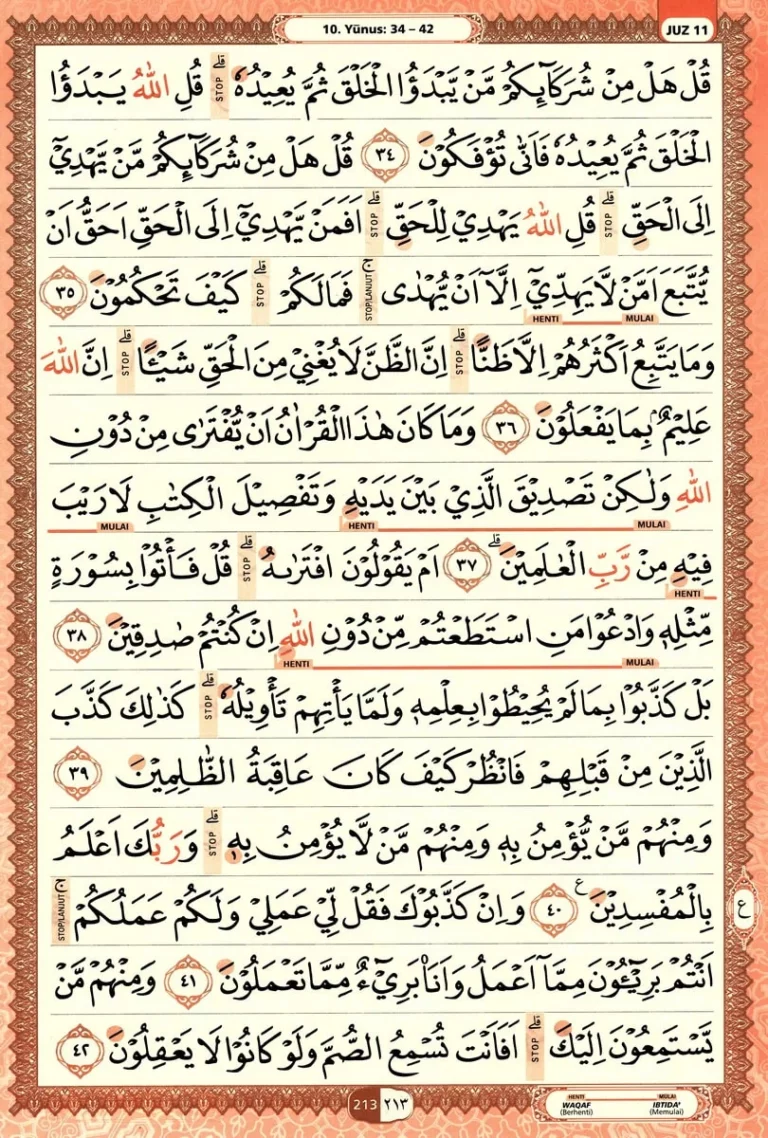 10. Yūnus: 34 – 42
JUZ 11
قُلْ هَلْ مِنْ شُرَكَاۤىِٕكُمْ مَّنْ يَّبْدَؤُا الْخَلْقَ ثُمَّ يُعِيْدُهٗۗ قُلِ اللّٰهُ يَبْدَؤُا
STOP
الْخَلْقَ ثُمَّ يُعِيْدُهٗ فَاَنّٰى تُؤْفَكُوْنَ ٣٤ قُلْ هَلْ مِنْ شُرَكَاۤىِٕكُمْ مَّنْ يَّهْدِيْٓ
اِلَى الْحَقِّۗ قُلِ اللّٰهُ يَهْدِيْ لِلْحَقِّۗ اَفَمَنْ يَّهْدِيْٓ اِلَى الْحَقِّ اَحَقُّ اَنْ
STOP STOP
يُّتَّبَعَ اَمَّنْ لَّا يَهِدِّيْٓ اِلَّآ اَنْ يُّهْدٰىۚ فَمَا لَكُمْۗ كَيْفَ تَحْكُمُوْنَ ٣٥
STOP/LANJUT STOP
MULAI HENTI
وَمَا يَتَّبِعُ اَكْثَرُهُمْ اِلَّا ظَنًّاۗ اِنَّ الظَّنَّ لَا يُغْنِيْ مِنَ الْحَقِّ شَيْـًٔاۗ اِنَّ اللّٰهَ
STOP STOP
عَلِيْمٌۢ بِمَا يَفْعَلُوْنَ ٣٦ وَمَا كَانَ هٰذَا الْقُرْاٰنُ اَنْ يُّفْتَرٰى مِنْ دُوْنِ
اللّٰهِ وَلٰكِنْ تَصْدِيْقَ الَّذِيْ بَيْنَ يَدَيْهِ وَتَفْصِيْلَ الْكِتٰبِ لَا رَيْبَ
MULAI HENTI MULAI
فِيْهِ مِنْ رَّبِّ الْعٰلَمِيْنَۗ ٣٧ اَمْ يَقُوْلُوْنَ افْتَرٰىهُۗ قُلْ فَأْتُوْا بِسُوْرَةٍ
HENTI STOP
مِّثْلِهٖ وَادْعُوْا مَنِ اسْتَطَعْتُمْ مِّنْ دُوْنِ اللّٰهِ اِنْ كُنْتُمْ صٰدِقِيْنَ ٣٨
MULAI HENTI
بَلْ كَذَّبُوْا بِمَا لَمْ يُحِيْطُوْا بِعِلْمِهٖ وَلَمَّا يَأْتِهِمْ تَأْوِيْلُهٗۗ كَذٰلِكَ كَذَّبَ
STOP
الَّذِيْنَ مِنْ قَبْلِهِمْ فَانْظُرْ كَيْفَ كَانَ عَاقِبَةُ الظّٰلِمِيْنَ ٣٩
وَمِنْهُمْ مَّنْ يُّؤْمِنُ بِهٖ وَمِنْهُمْ مَّنْ لَّا يُؤْمِنُ بِهٖۗ وَرَبُّكَ اَعْلَمُ
STOP
بِالْمُفْسِدِيْنَ ࣖ ٤٠ وَاِنْ كَذَّبُوْكَ فَقُلْ لِّيْ عَمَلِيْ وَلَكُمْ عَمَلُكُمْۚ
STOP/LANJUT
ع
اَنْتُمْ بَرِيْۤـُٔوْنَ مِمَّآ اَعْمَلُ وَاَنَا۠ بَرِيْۤءٌ مِّمَّا تَعْمَلُوْنَ ٤١ وَمِنْهُمْ مَّنْ
يَّسْتَمِعُوْنَ اِلَيْكَۗ اَفَاَنْتَ تُسْمِعُ الصُّمَّ وَلَوْ كَانُوْا لَا يَعْقِلُوْنَ ٤٢
STOP
213 ٢١٣
HENTI MULAI
WAQAF IBTIDA'
(Berhenti) (Memulai)